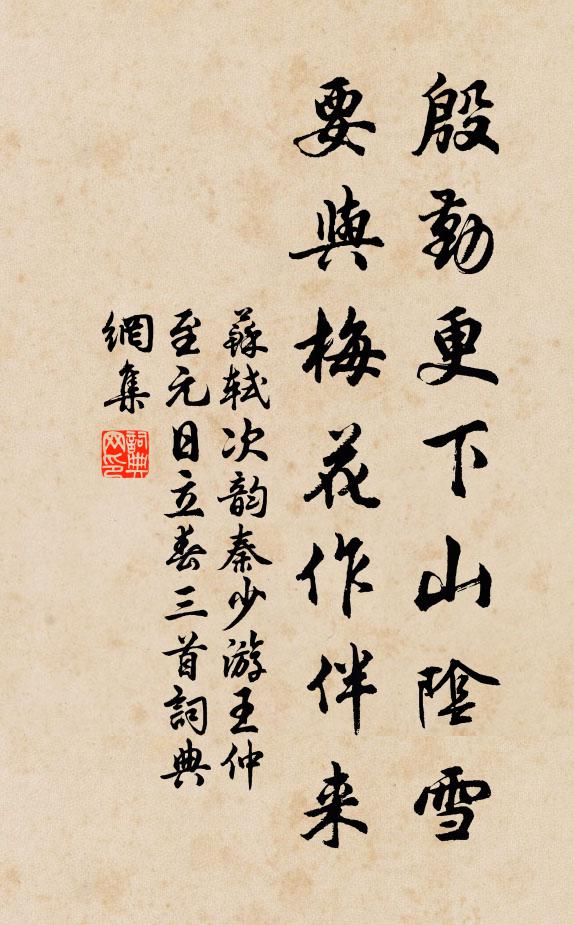 殷勤更下山陰雪
要與梅花作伴来
蘇軾次韵秦少游王仲
至元日立春三首詞典
網集
詞典
网印